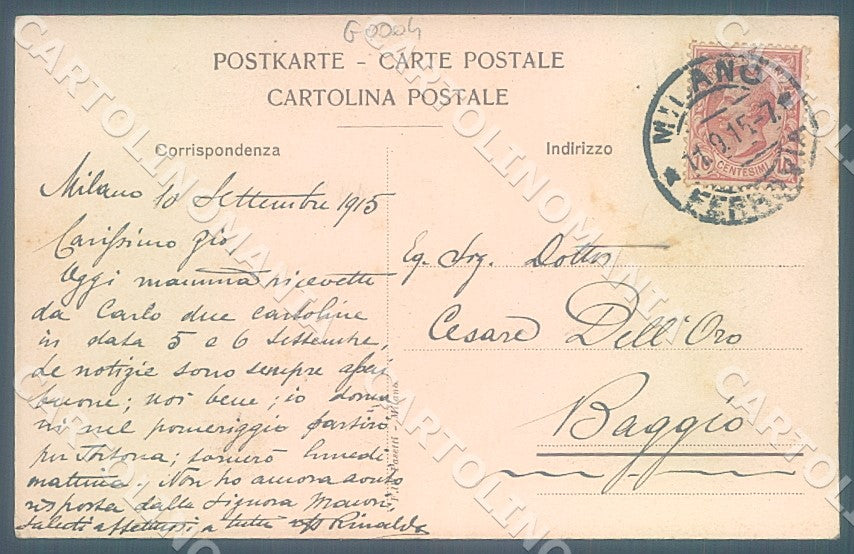 G0004
POSTKARTE - CARTE POSTALE
CARTOLINA POSTALE
Corrispondenza
Indirizzo
MILANO
FERROVIA
CENTESIMI
Milano 10 Settembre 1915
Carissimo zio
Oggi mamma ricevette
da Carlo due cartoline
in data 5 e 6 Settembre,
le notizie sono sempre assai
buone; noi bene; io doma
ni nel pomeriggio partirò
per Tortona; tornerò lunedì
mattina. Non ho ancora avuto
risposta dalla Signora
Saluti affettuosi a tutti Rinaldo
Eg. Sig. Dottor
Cesare Dell'Oro
Baggio
Milano.
CARTOLINOMANIA